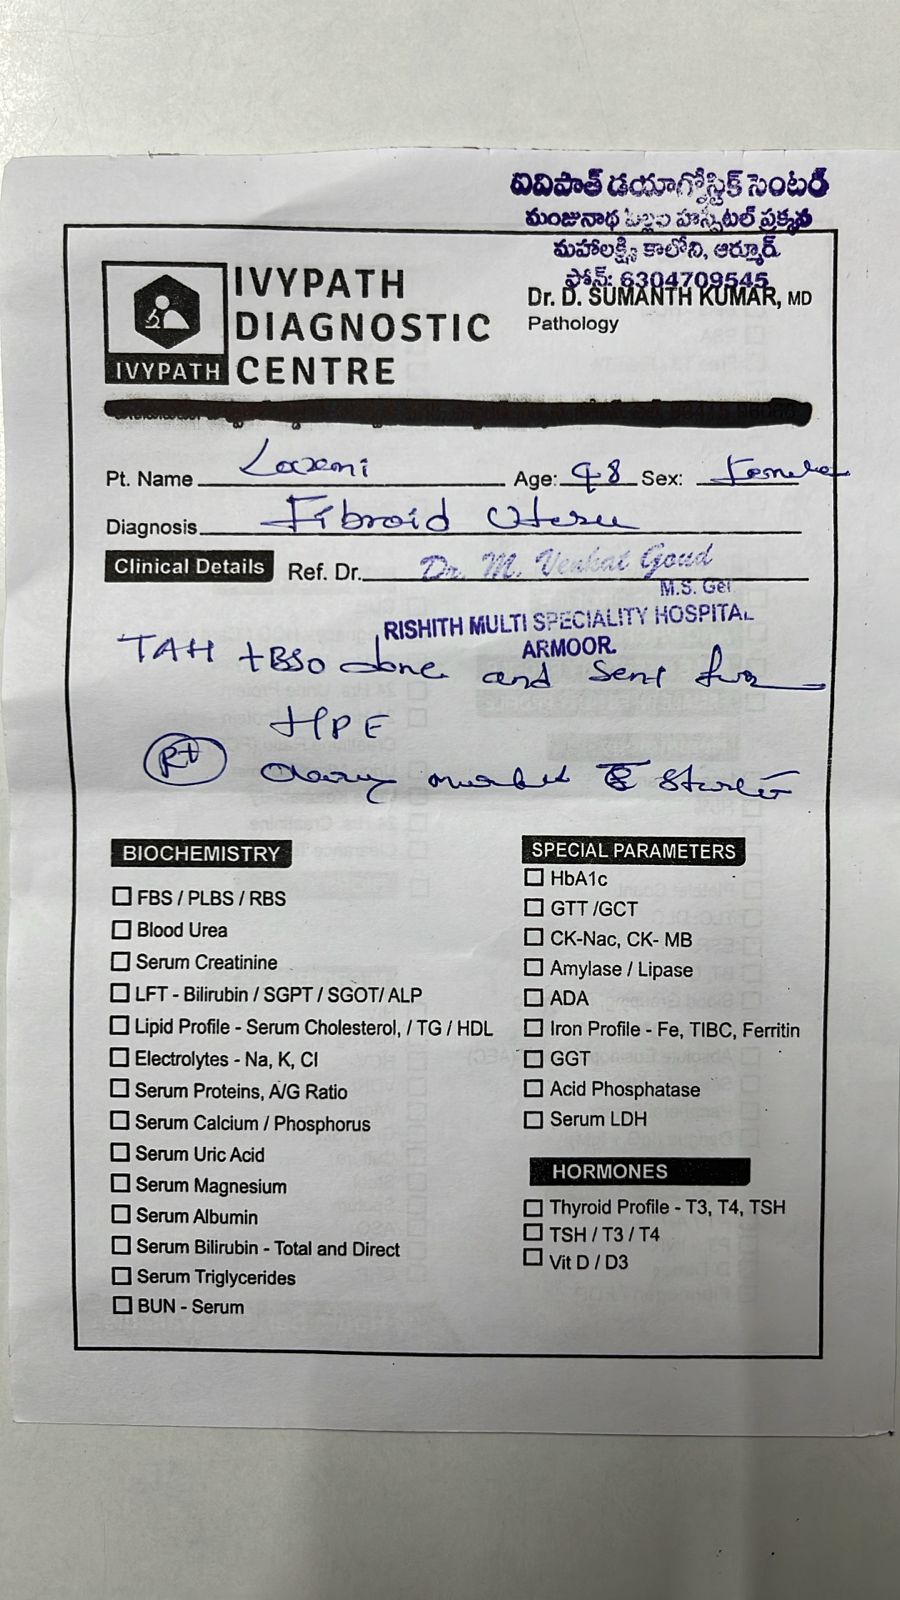 ఐవిపాత్ డయాగ్నోస్టిక్ సెంటర్
మంజునాథ హాస్పిటల్ ప్రక్కన
మహాలక్ష్మి కాలోని, ఆర్మూర్.
ఫోన్: 6304709545
IVYPATH
DIAGNOSTIC
CENTRE
IVYPATH
Dr. D. SUMANTH KUMAR, MD
Pathology
Pt. Name Laxmi Age: 48 Sex: Female
Diagnosis Fibroid Uterus
Clinical Details Ref. Dr. Dr. M. Venkat Goud
M.S. Gel
RISHITH MULTI SPECIALITY HOSPITAL
ARMOOR.
TAH + BSO done and sent for
HPE
Rt ovary marked c̄
BIOCHEMISTRY
FBS / PLBS / RBS
Blood Urea
Serum Creatinine
LFT - Bilirubin / SGPT / SGOT/ ALP
Lipid Profile - Serum Cholesterol, / TG / HDL
Electrolytes - Na, K, Cl
Serum Proteins, A/G Ratio
Serum Calcium / Phosphorus
Serum Uric Acid
Serum Magnesium
Serum Albumin
Serum Bilirubin - Total and Direct
Serum Triglycerides
BUN - Serum
SPECIAL PARAMETERS
HbA1c
GTT /GCT
CK-Nac, CK- MB
Amylase / Lipase
ADA
Iron Profile - Fe, TIBC, Ferritin
GGT
Acid Phosphatase
Serum LDH
HORMONES
Thyroid Profile - T3, T4, TSH
TSH / T3 / T4
Vit D / D3